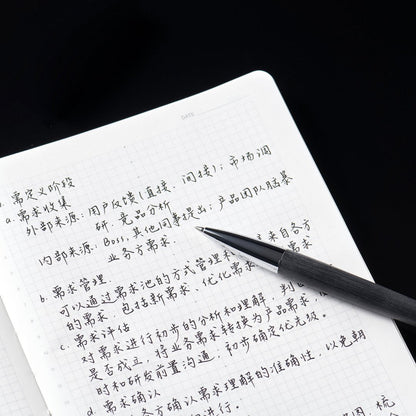 DATE
需定义阶段
a. 需求收集
外部来源：用户反馈（直接、间接）；市场调
研、竞品分析
内部来源：Boss、其他同事提出；产品团队脑暴
业务方需求.
b. 需求管理
可以通过需求池的方式管理和 主来自各方
的需求，包括新需求、优化需求 需求
c. 需求评估
对需求进行初步的分析和理解，判
是否成立，将业务需求转换为产品需求，
时和研发前置沟通，初步确定优先级。
d. 需求确认
各方确认需求理解的准确性，以免朝
进行.